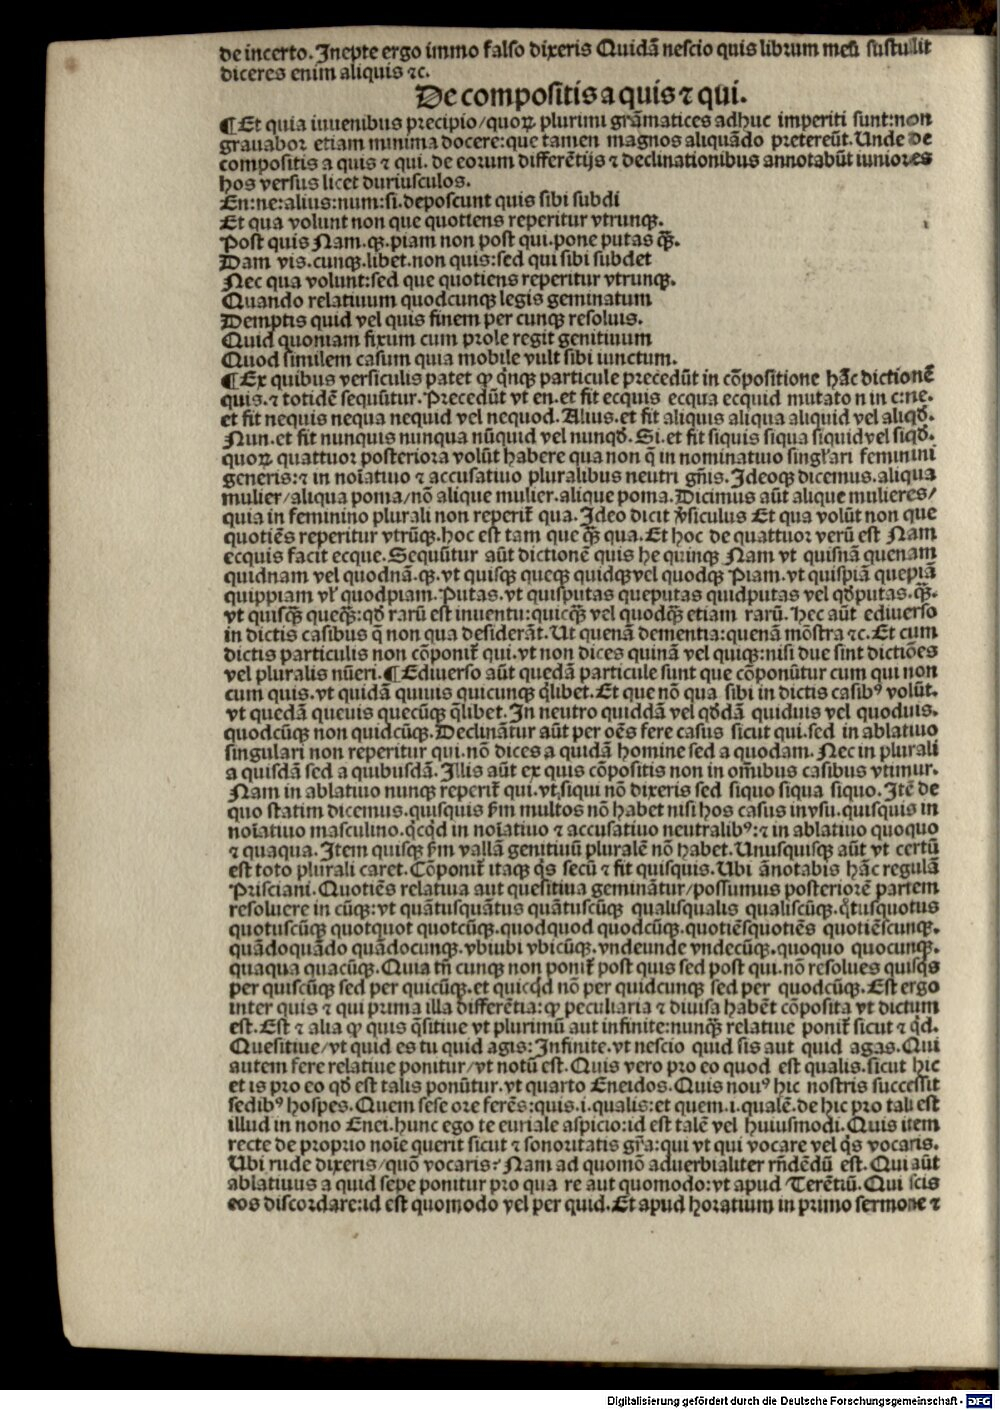 de incerto. Inepte ergo immo falso dixeris Quidã nescio quis librum meũ sustulit
diceres enim aliquis ⁊c.
De compositis a quis ⁊ qui.
¶Et quia iuuenibus precipio/quoꝝ plurimi grãmatices adhuc imperiti sunt:non
grauabor etiam minima docere:que tamen magnos aliquãdo pretereũt. Unde de
compositis a quis ⁊ qui. de eorum differẽtijs ⁊ declinationibus annotabũt iuniores
hos versus licet duriusculos.
En:ne:alius:num:si.deposcunt quis sibi subdi
Et qua volunt non que quotiens reperitur vtrunqꝫ.
Post quis Nam.qꝫ.piam non post qui.pone putas q̃ꝫ.
Dam vis.cunqꝫ.libet.non quis:sed qui sibi subdet
Nec qua volunt:sed que quotiens reperitur vtrunqꝫ.
Quando relatiuum quodcunqꝫ legis geminatum
Demptis quid vel quis finem per cunqꝫ resoluis.
Quid quoniam fixum cum prole regit genitiuum
Quod similem casum quia mobile vult sibi iunctum.
¶Ex quibus versiculis patet ꝙ q̇nqꝫ particule precedũt in cõpositione hãc dictionẽ
quis.⁊ totidẽ sequũtur. Precedũt vt en.et fit ecquis ecqua ecquid mutato n in c:ne.
et fit nequis nequa nequid vel nequod. Alius.et fit aliquis aliqua aliquid vel aliqḋ.
Nun.et fit nunquis nunqua nũquid vel nunqḋ. Si.et fit siquis siqua siquid vel siqḋ.
quoꝝ quattuor posteriora volũt habere qua non q̃ in nominatiuo singl'ari feminini
generis:⁊ in noĩatiuo ⁊ accusatiuo pluralibus neutri gñis. Ideoqꝫ dicemus.aliqua
mulier/aliqua poma/nõ alique mulier.alique poma. Dicimus aũt alique mulieres/
quia in feminino plurali non reperit̃ qua. Ideo dicit ṽsiculus Et qua volũt non que
quotiẽs reperitur vtrũqꝫ.hoc est tam que q̃ꝫ qua. Et hoc de quattuor verũ est Nam
ecquis facit ecque. Sequũtur aũt dictionẽ quis he quinqꝫ Nam vt quisnã quenam
quidnam vel quodnã.qꝫ.vt quisqꝫ queqꝫ quidqꝫ vel quodqꝫ Piam.vt quispiã quepiã
quippiam vl' quodpiam. Putas.vt quisputas queputas quidputas vel qḋputas.q̃ꝫ.
vt quisq̃ꝫ queq̃ꝫ:qḋ rarũ est inuentu:quicq̃ꝫ vel quodq̃ꝫ etiam rarũ. Hec aũt ediuerso
in dictis casibus q̃ non qua desiderãt. Ut quenã dementia:quenã mõstra ⁊c. Et cum
dictis particulis non cõponit̃ qui.vt non dices quinã vel quiqꝫ:nisi due sint dictiões
vel pluralis nũeri.¶Ediuerso aũt quedã particule sunt que cõponũtur cum qui non
cum quis.vt quidã quiuis quicunqꝫ q̇libet. Et que nõ qua sibi in dictis casibꝰ volũt.
vt quedã queuis quecũqꝫ q̃libet. In neutro quiddã vel qḋdã quiduis vel quoduis.
quodcũqꝫ non quidcũqꝫ. Declinãtur aũt per oẽs fere casus sicut qui.sed in ablatiuo
singulari non reperitur qui.nõ dices a quidã homine sed a quodam. Nec in plurali
a quisdã sed a quibusdã. Illis aũt ex quis cõpositis non in om̃ibus casibus vtimur.
Nam in ablatiuo nunqꝫ reperit̃ qui.vt siqui nõ dixeris sed siquo siqua siquo. Itẽ de
quo statim dicemus.quisquis ẜm multos nõ habet nisi hos casus in vsu.quisquis in
noĩatiuo masculino.q̇cq̇d in noĩatiuo ⁊ accusatiuo neutralibꝰ:⁊ in ablatiuo quoquo
⁊ quaqua. Item quisqꝫ ẜm vallã genitiuũ pluralẽ nõ habet. Unusquisqꝫ aũt vt certũ
est toto plurali caret. Cõponit̃ itaqꝫ q̇s secũ ⁊ fit quisquis. Ubi ãnotabis hãc regulã
Prisciani. Quotiẽs relatiua aut quesitiua geminãtur/possumus posteriorẽ partem
resoluere in cũqꝫ:vt quãtusquãtus quãtuscũqꝫ qualisqualis qualiscũqꝫ.q̇tusquotus
quotuscũqꝫ quotquot quotcũqꝫ.quodquod quodcũqꝫ.quotiẽsquotiẽs quotiẽscunqꝫ.
quãdoquãdo quãdocunqꝫ.vbiubi vbicũqꝫ.vndeunde vndecũqꝫ.quoquo quocunqꝫ.
quaqua quacũqꝫ. Quia tñ cunqꝫ non ponit̃ post quis sed post qui.nõ resolues quisq̇s
per quiscũqꝫ sed per quicũqꝫ.et quicq̇d nõ per quidcunqꝫ sed per quodcũqꝫ. Est ergo
inter quis ⁊ qui prima illa differẽtia:ꝙ peculiaria ⁊ diuisa habẽt cõposita vt dictum
est. Est ⁊ alia ꝙ quis q̃sitiue vt plurimũ aut infinite:nunq̃ꝫ relatiue ponit̃ sicut ⁊ q̇d.
Quesitiue/vt quid es tu quid agis: Infinite.vt nescio quid sis aut quid agas. Qui
autem fere relatiue ponitur/vt notũ est. Quis vero pro eo quod est qualis.sicut hic
et is pro eo qḋ est talis ponũtur.vt quarto Eneidos. Quis nouꝰ hic nostris successit
sedibꝰ hospes. Quem sese ore ferẽs:quis.i.qualis:et quem.i.qualẽ.de hic pro tali est
illud in nono Enei.hunc ego te euriale aspicio:id est talẽ vel huiusmodi. Quis item
recte de proprio noĩe querit sicut ⁊ sonoritatis gr̃a:qui vt qui vocare vel q̇s vocaris.
Ubi rude dixeris/quõ vocaris: Nam ad quomõ aduerbialiter rñdẽdũ est. Qui aũt
ablatiuus a quid sepe ponitur pro qua re aut quomodo:vt apud Terẽtiũ. Qui scis
eos discordare:id est quomodo vel per quid. Et apud horatium in primo sermone ⁊
Digitalisierung gefördert durch die Deutsche Forschungsgemeinschaft - DFG